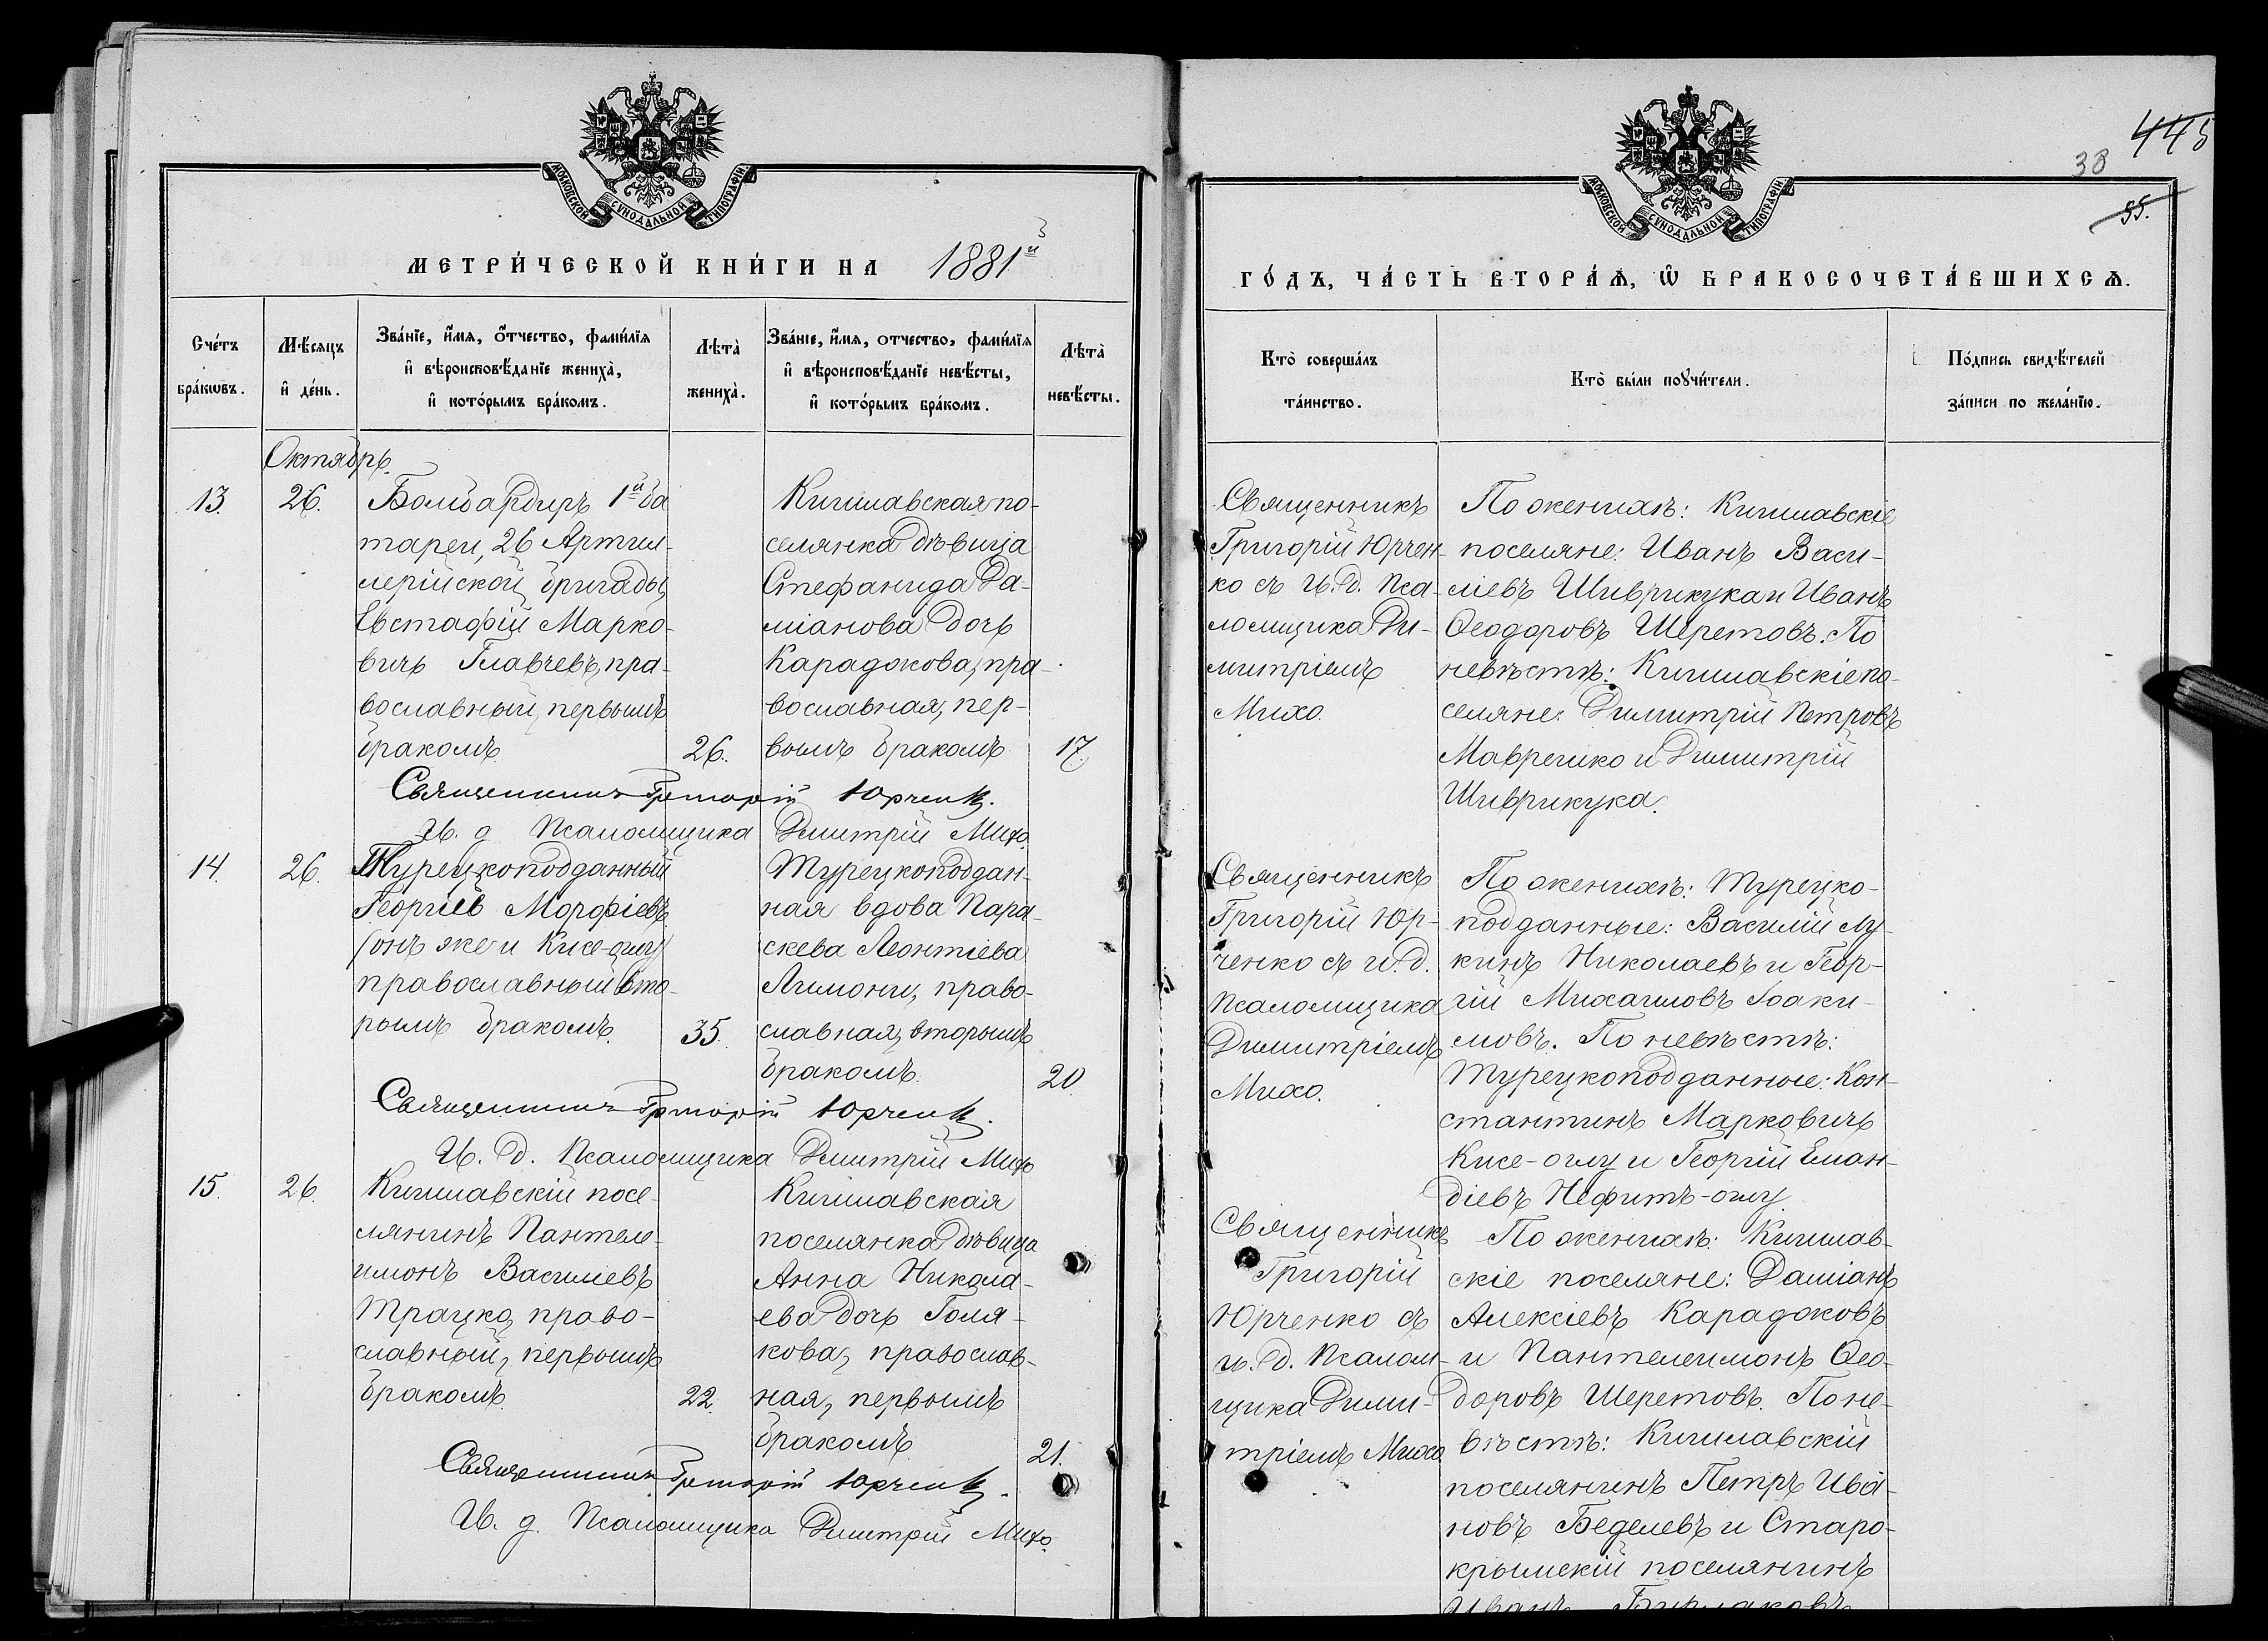 МОСКОВСКОЙ СѴНОДАЛЬНОЙ ТИПОГРАФІИ
МЕТРИ́ЧЕСКОЙ КНИ́ГИ НА 1881й
Сче́тъ бра́кѡвъ.
Мѣ́сяцъ и҆ де́нь.
Зва́нїе, и҆́мѧ, ѻ҆́тчество, фами́лїѧ
и҆ вѣроисповѣ́данїе жениха̀,
и҆ кото́рымъ бра́комъ.
Лѣта̀ жениха̀.
Зва́нїе, и҆́мѧ, отчество, фами́лїѧ
и҆ вѣроисповѣ́данїе невѣ́сты,
и҆ кото́рымъ бра́комъ.
Лѣта̀ невѣ́сты.
Октябрь.
13.
26.
Бомбардиръ 1й ба
тареи, 26 Артил-
лерійской бригады
Евстафій Марко-
вичъ Главчевъ, пра-
вославный, первымъ
бракомъ
26.
Кишлавская по-
селянка дѣвица
Стефанида Да-
міанова дочь
Карадокова, пра-
вославная, пер-
вымъ бракомъ
17.
Священникъ Григорій Юрченко.
И. д. Псаломщика Димитрій Михо.
14.
26.
Турецкоподданный
Георгіев Морфіевъ
(онъ же и Кисе-оглу)
православный вто-
рымъ бракомъ.
35.
Турецкоподдан-
ная вдова Пара-
скева Леонтіева
Лимони, право-
славная, вторымъ
бракомъ
20.
Священникъ Григорій Юрченко.
И. д. Псаломщика Димитрій Михо
15.
26.
Кишлавскій посе-
лянинъ Пантеле-
имонъ Васильевъ
Трацко, право-
славный, первымъ
бракомъ
22.
Кишлавская
поселянка дѣвица
Анна Никола-
ева дочь Голя-
кова, православ-
ная, первымъ
бракомъ
21.
Священникъ Григорій Юрченко.
И. д. Псаломщика Димитрій Михо.
МОСКОВСКОЙ СѴНОДАЛЬНОЙ ТИПОГРАФІИ
445
38
55.
ГО́ДЪ, ЧА́СТЬ ВТОРА́Ѧ, Ѽ БРАКОСОЧЕТА́ВШИХСѦ.
Кто̀ соверша́лъ
та́инство.
Кто̀ бы́ли поꙋчи́тели.
По́дпись свидѣ́телей
за́писи по жела́нїю.
Священникъ
Григорій Юрчен-
ко съ и. д. Пса-
ломщика Ди-
митріемъ
Михо.
По женихѣ: Кишлавскіе
поселяне: Иванъ Васи-
ліевъ Шиврикука и Иванъ
Ѳеодоровъ Шеретовъ. По
невѣстѣ: Кишлавскіе по-
селяне: Димитрій Петровъ
Маврешко и Димитрій
Шиврикука.
Священникъ
Григорій Юр-
ченко съ и. д.
Псаломщика
Димитріемъ
Михо.
По женихѣ: Турецко-
подданные: Василій Лу-
кинъ Николаевъ и Геор-
гій Михаиловъ Іоаки-
мовъ. По невѣстѣ:
Турецкоподданные: Кон-
стантинъ Марковичъ
Кисе-оглу и Георгій Еман-
діевъ Нефитъ-оглу
Священникъ
Григорій
Юрченко съ
и. д. Псалом-
щика Дими-
тріемъ Михо.
По женихѣ: Кишлав-
скіе поселяне: Даміанъ
Алексіевъ Карадоковъ
и Пантелеимонъ Ѳео-
доровъ Шеретовъ. По не-
вѣстѣ: Кишлавскій
поселянинъ Петръ Ива-
новъ Беделевъ и Старо-
крымскій поселянинъ
Иванъ